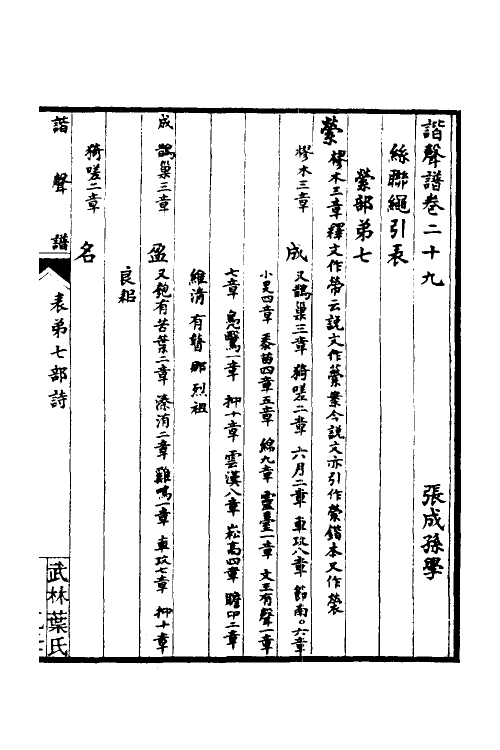 諧聲譜卷二十九
張成孫學
絲聯繩引表
縈部弟七
縈 樛木三章釋文作帶云說文作蘩案今說文亦引作縈鍇本又作蘩
樛木三章
成 又鵲巢三章 猗嗟二章 六月二章 車攻八章 節南。六章
小旻四章 黍苗四章五章 緜九章 靈臺一章 文王有聲一章
七章 鳧鷖一章 抑十章 雲漢八章 崧高四章 瞻卬二章
維清 有瞽 那 烈祖
成 鵲巢三章
盈 又匏有苦葉二章 溱洧二章 雞鳴一章 車攻七章 抑十章
良耜
猗嗟二章
名
諧聲譜
表弟七部詩
武林葉氏